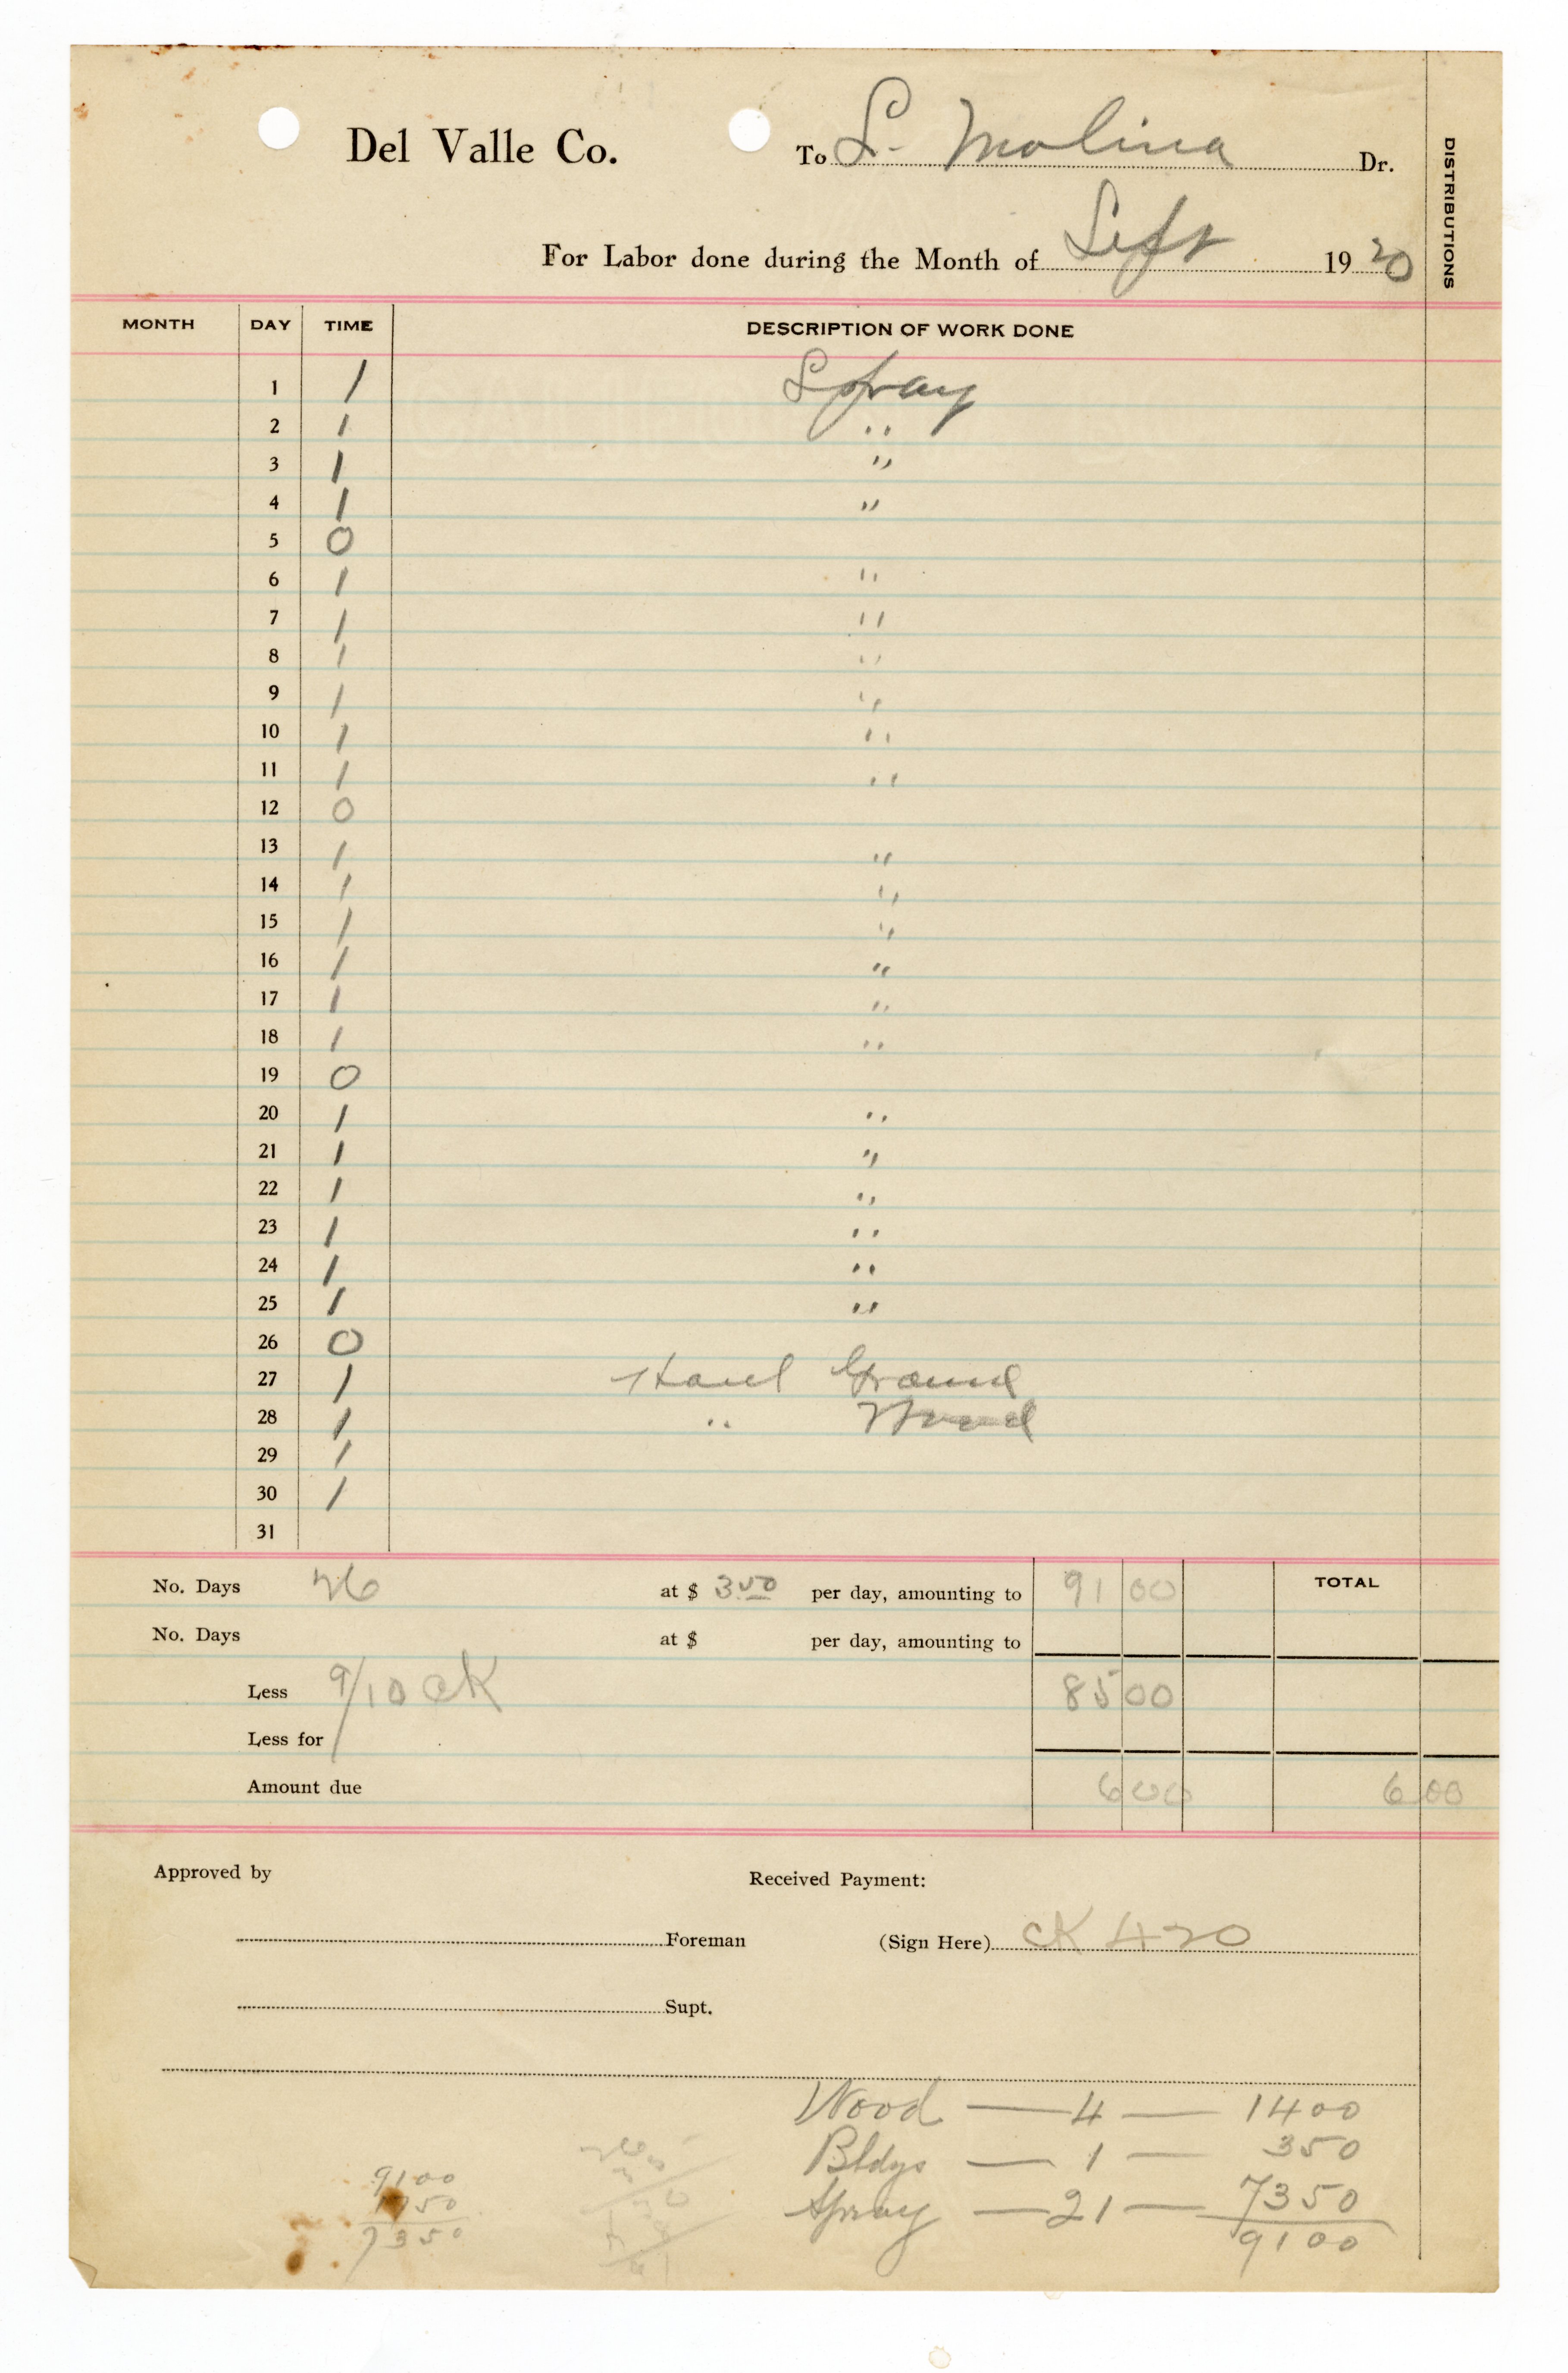 Del Valle Co. To L. Molina Dr.
DISTRIBUTIONS
For Labor done during the Month of Sept 1920
MONTH DAY TIME DESCRIPTION OF WORK DONE
1 1 Spray
2 1 "
3 1 "
4 1 "
5 0
6 1 "
7 1 "
8 1 "
9 1 "
10 1 "
11 1 "
12 0
13 1 "
14 1 "
15 1 "
16 1 "
17 1 "
18 1 "
19 0
20 1 "
21 1 "
22 1 "
23 1 "
24 1 "
25 1 "
26 0
27 1 Haul
28 1 " Wood
29 1
30 1
31
No. Days 26 at $ 3.50 per day, amounting to 91 00 TOTAL
No. Days at $ per day, amounting to
Less 9/10 CK 85 00
Less for
Amount due 6 00 6 00
Approved by Received Payment:
Foreman (Sign Here) CK 420
Supt.
Wood — 4 — 1400
Bldgs — 1 — 350
Spray — 21 — 7350
9100
9100
1750
7350